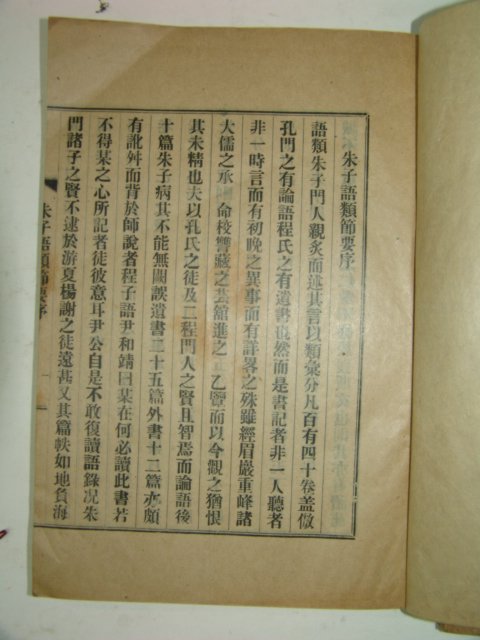 朱子語類節要序
語類朱子門人親炙而述其言以類彙分凡百有四十卷蓋倣
孔門之有論語程氏之有遺書也然而是書記者非一人聽者
非一時言而有初晚之異事而有詳畧之殊雖經眉巖重峰諸
大儒之承 命校讐藏之芸舘進之 乙覽而以今觀之猶恨
其未精也夫以孔氏之徒及二程門人之賢且智焉而論語後
十篇朱子病其不能無闕誤遺書二十五篇外書十二篇亦頗
有訛舛而背於師說者程子語尹和靖曰某在何必讀此書若
不得某之心所記者徒彼意耳尹公自是不敢復讀語錄况朱
門諸子之賢不逮於游夏楊謝之徒遠甚又其篇帙如地負海
朱子語類節要序
一